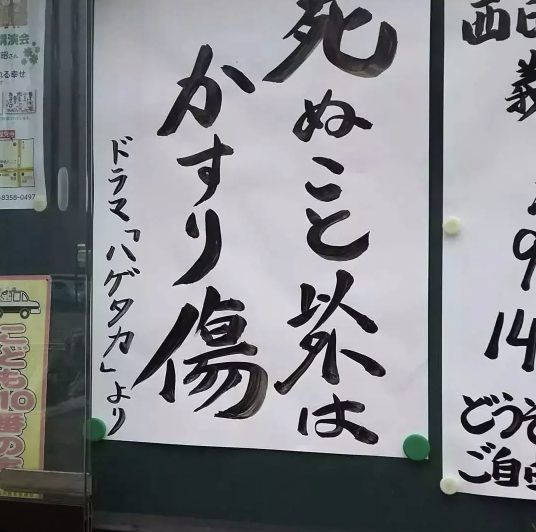 死ぬこと以外は
かすり傷
ドラマ「ハゲタカ」より
西
義
9
14
どうぞ
ご自由
講演会
昭さん
れる幸せ
8358-0497
こども110番の